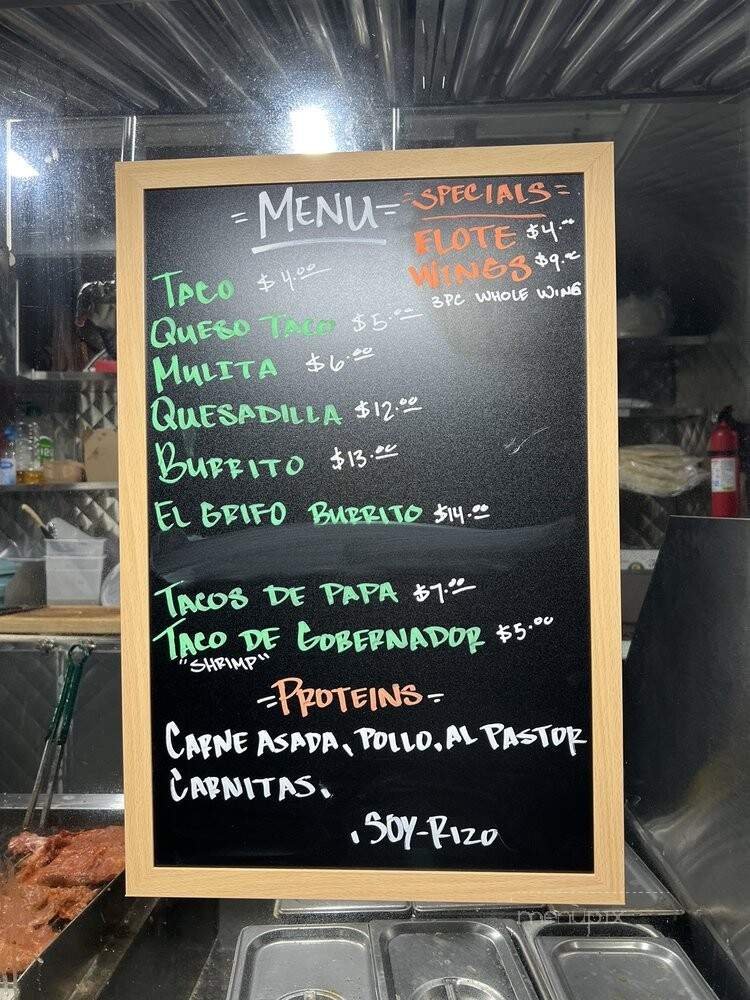 = MENU =
= SPECIALS =
ELOTE $4.00
WINGS $9.00
3PC WHOLE WING
TACO $4.00
QUESO TACO $5.00
MULITA $6.00
QUESADILLA $12.00
BURRITO $13.00
EL GRIFO BURRITO $14.00
TACOS DE PAPA $7.00
TACO DE GOBERNADOR $5.00
"SHRIMP"
= PROTEINS =
CARNE ASADA, POLLO, AL PASTOR
CARNITAS,
, SOY-RIZO
menupix